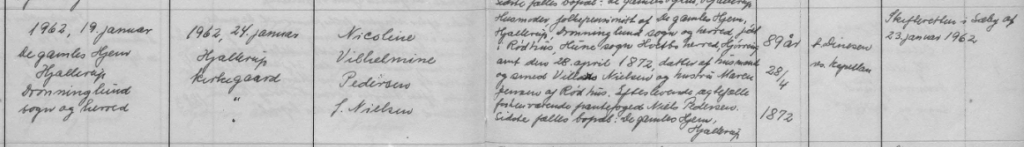 1962, 19. januar
De gamles Hjem
Hjallerup
Dronninglund
sogn og herred
1962, 24. januar
Hjallerup
kirkegaard
"
Nicoline
Vilhelmine
Pedersen
f. Nielsen
Husmoder, folkepensionist af De gamles Hjem,
Hjallerup, Dronninglund sogn og herred, født
i Rødhus, Hune sogn Hvetbo herred, Hjørring
amt den 28 april 1872, datter af husmand
og smed Villads Nielsen og hustru Maren
af Rødhus. Efterlevende ægtefælle
fhv. pantefoged Niels Pedersen.
Sidste fælles bopæl: De gamles Hjem,
Hjallerup
89 år
28/4
1872
f. Dinesen
ss. kapellan
Skifteretten i Sæby af
23 januar 1962